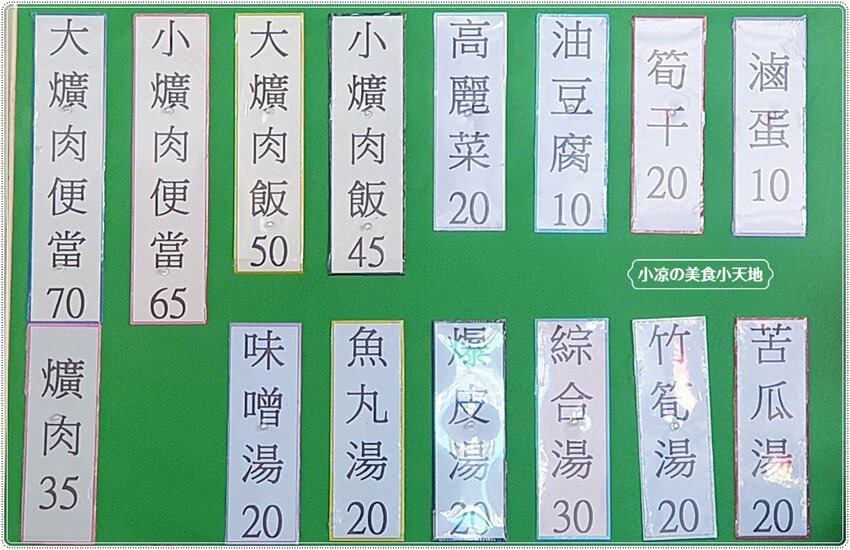 大爌肉便當70
小爌肉便當65
大爌肉飯50
小爌肉飯45
高麗菜20
油豆腐10
筍干20
滷蛋10
小凉の美食小天地
爌肉35
味噌湯20
魚丸湯20
爆皮湯20
綜合湯30
竹筍湯20
苦瓜湯20